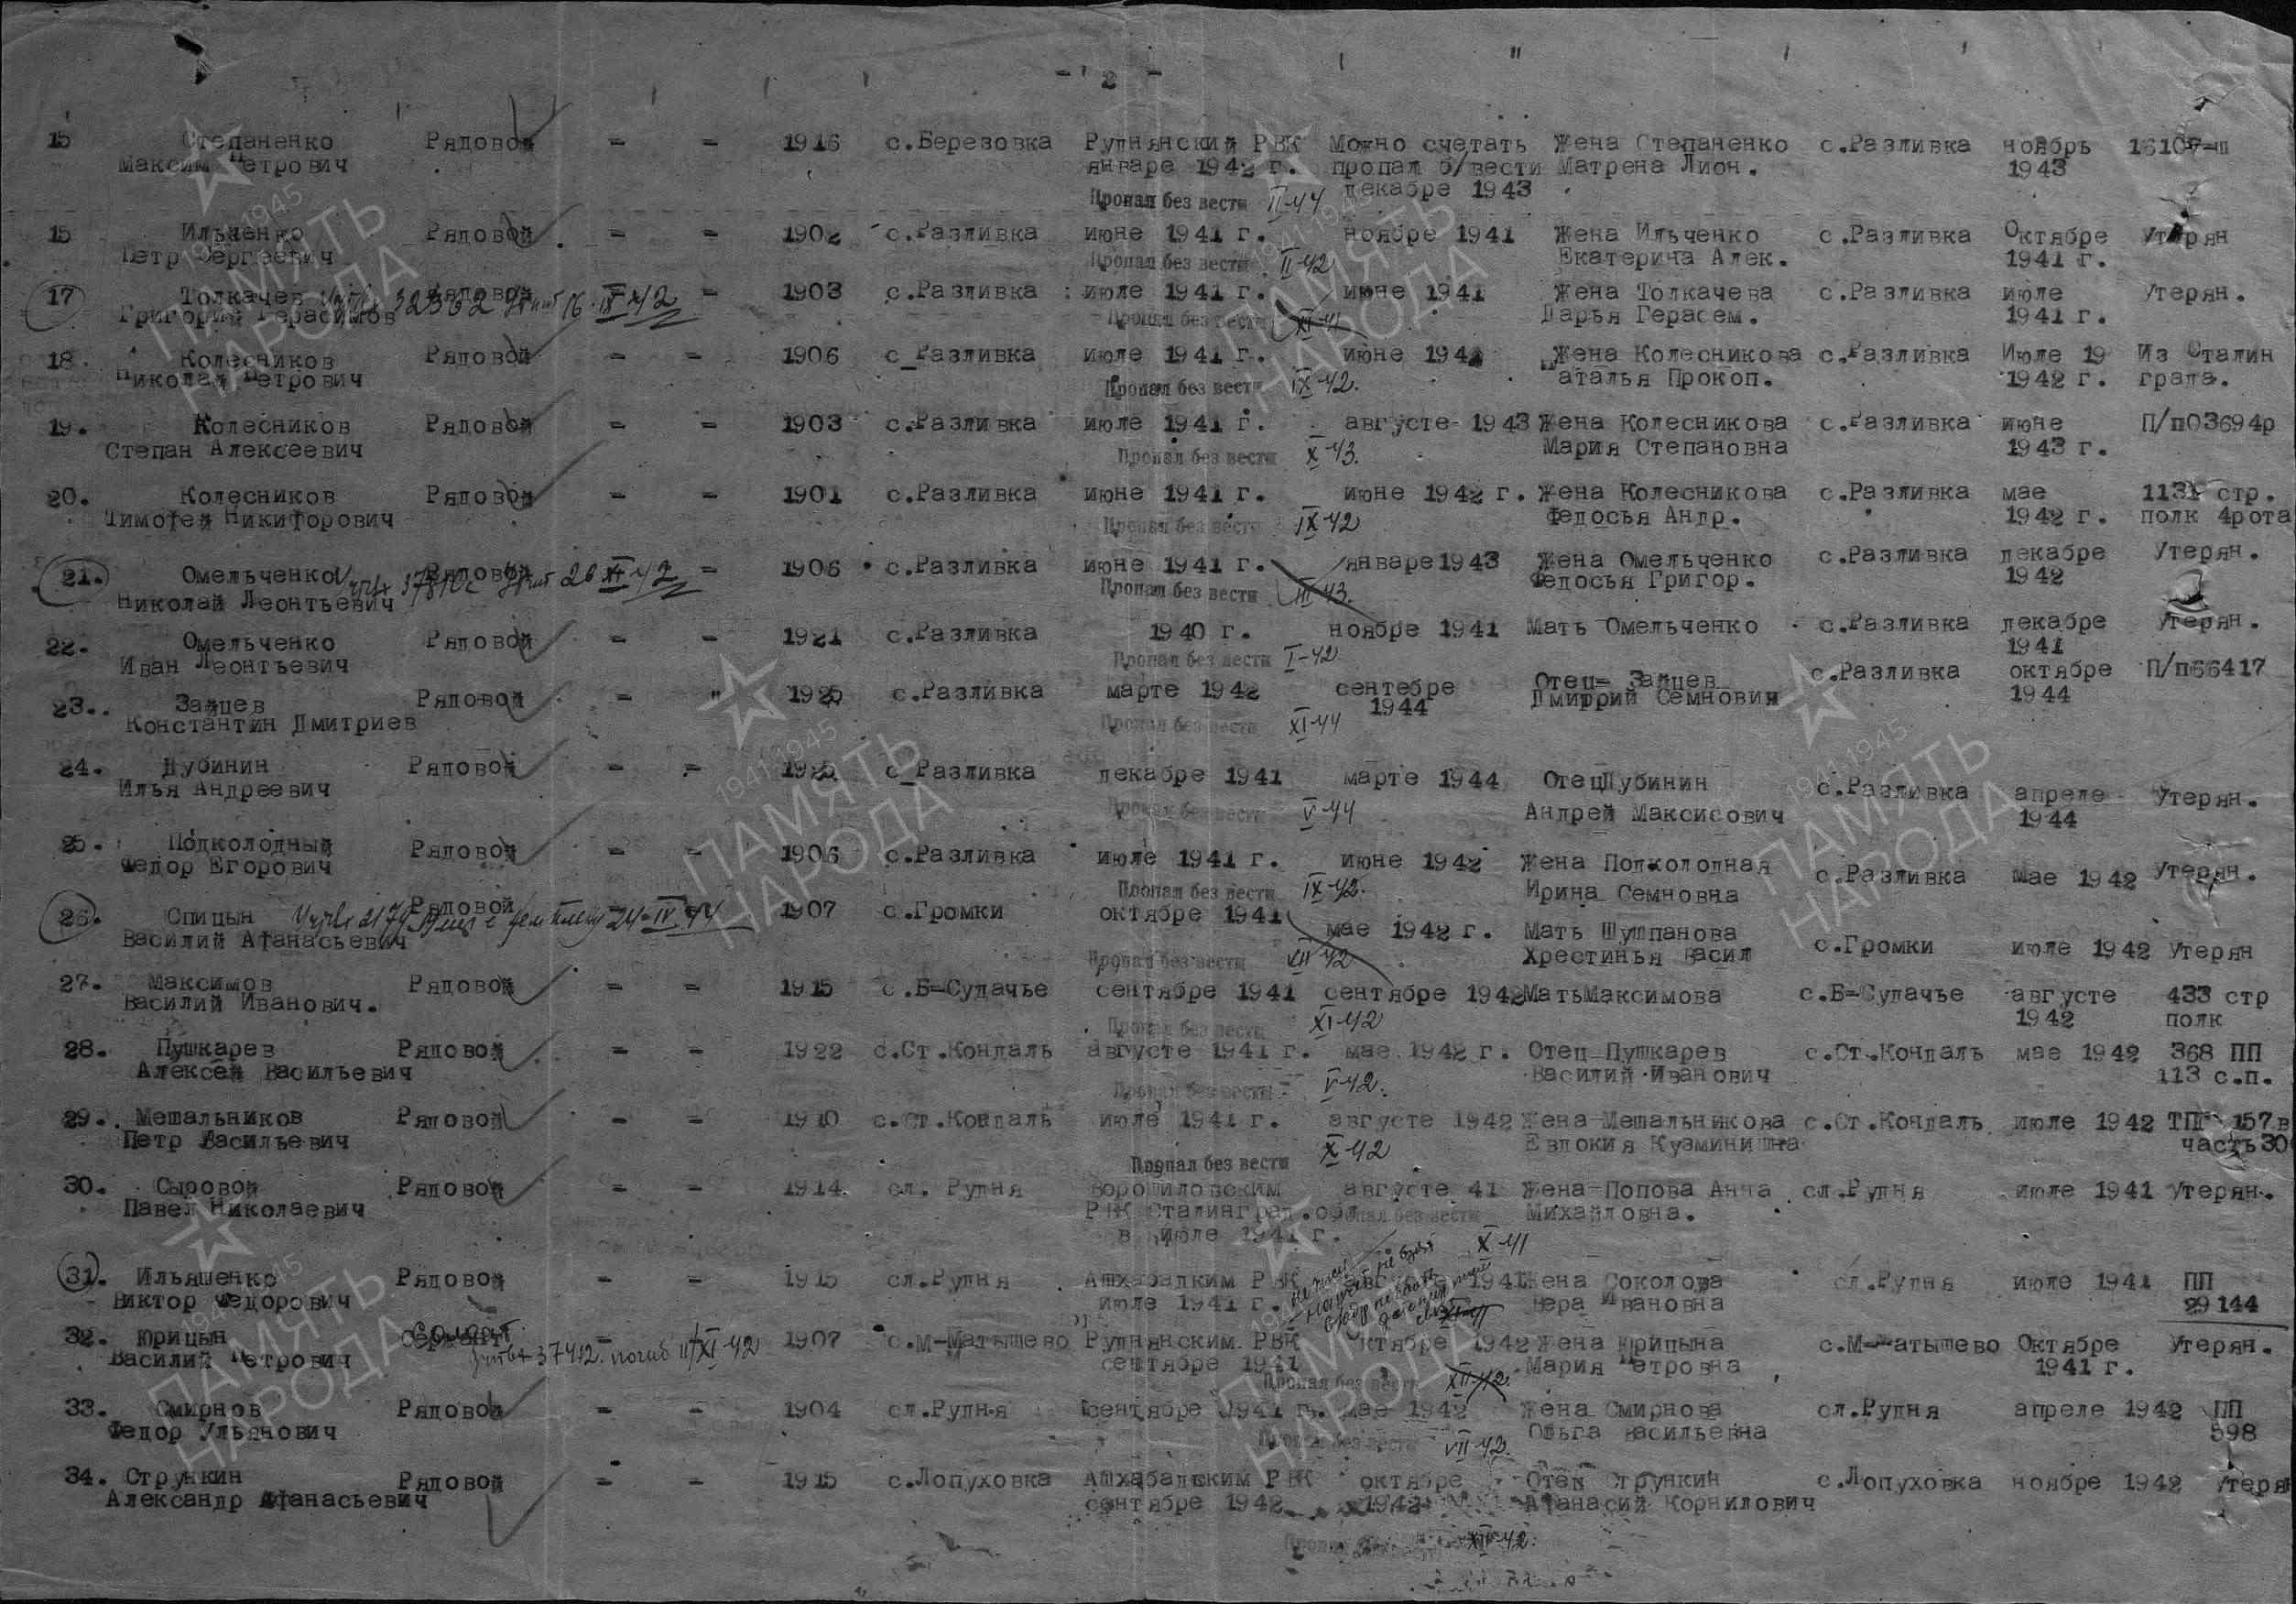 - 2 -
15 Степаненко Рядовой - - 1916 с.Березовка Руднянский РВК Можно считать Жена Степаненко с.Разливка ноябрь 16107-ш
Максим Петрович январе 1942 г. пропал б/вести Матрена Лион. 1943
Пропал без вести II-44 декабре 1943
15 Ильченко Рядовой - - 1902 с.Разливка июне 1941 г. ноябре 1941 Жена Ильченко с.Разливка Октябре Утерян
Петр Сергеевич Пропал без вести II-42 Екатерина Алек. 1941 г.
17 Толкачев Рядовой - 1903 с.Разливка июле 1941 г. июне 1941 Жена Толкачева с.Разливка июле Утерян.
Григорий Герасимов 32332 16.IX 42 Пропал без вести XI-41 Дарья Герасем. 1941 г.
18. Колесников Рядовой - - 1906 с_Разливка июле 1941 г. июне 1942 Жена Колесникова с.Разливка Июле 19 Из Сталин
Николай Петрович Пропал без вести IX-42. Наталья Прокоп. 1942 г. града.
19. Колесников Рядовой - - 1903 с.Разливка июле 1941 г. августе- 1943 Жена Колесникова с.Разливка июне П/п03694р
Степан Алексеевич Пропал без вести X-43. Мария Степановна 1943 г.
20. Колесников Рядовой - - 1901 с.Разливка июне 1941 г. июне 1942 г. Жена Колесникова с.Разливка мае 1131 стр.
Тимофей Никифорович Пропал без вести IX-42 Федосья Андр. 1942 г. полк 4рота
21. Омельченко Рядовой - 1906 с.Разливка июне 1941 г. январе1943 Жена Омельченко с.Разливка декабре Утерян.
Николай Леонтьевич 26 XI-42 Пропал без вести III-43. Федосья Григор. 1942
22. Омельченко Рядовой - - 1921 с.Разливка 1940 г. ноябре 1941 Мать Омельченко с.Разливка декабре Утерян.
Иван Леонтьевич Пропал без вести I-42 1941
23.. Зайцев Рядовой - " 1925 с.Разливка марте 1942 сентебре Отец- Зайцев с.Разливка октябре П/п66417
Константин Дмитриев 1944 Дмитрий Семнович 1944
Пропал без вести XI-44
24. Дубинин Рядовой - - 1925 с_Разливка декабре 1941 марте 1944 ОтецДубинин с.Разливка апреле Утерян.
Илья Андреевич Пропал без вести V-44 Андрей Максисович 1944
25. Подколодный Рядовой - - 1906 с.Разливка июле 1941 г. июне 1942 Жена Подколодная с.Разливка мае 1942 Утерян.
Федор Егорович Пропал без вести IX-42. Ирина Семновна
26. Спицын Рядовой 1907 с.Громки октябре 1941 мае 1942 г. Мать Шушпанова с.Громки июле 1942 Утерян
Василий Афанасьевич 24-IV-44 Пропал без вести VII-42 Хрестинья Васил
27. Максимов Рядовой - - 1915 с.Б=Судачье сентябре 1941 сентябре 1942 МатьМаксимова с.Б=Судачье августе 433 стр
Василий Иванович. Пропал без вести XI-42 1942 полк
28. Пушкарев Рядовой - - 1922 с.Ст.Кондаль августе 1941 г. мае 1942 г. Отец Пушкарев с.Ст.Кондаль мае 1942 368 ПП
Алексей Васильевич Пропал без вести V-42. Василий Иванович 113 с.п.
29.. Мешальников Рядовой - - 1910 с.Ст.Кондаль июле 1941 г. августе 1942 Жена Мешальникова с.Ст.Кондаль июле 1942 157в
Петр Васильевич X-42 Евдокия Кузминишна часть30
Пропал без вести
30. Сыровой Рядовой - - 1914 сл. Рудня Ворошиловским августе 41 Жена-Попова Анна сл.Рудня июле 1941 Утерян.
Павел Николаевич РВК Сталинград.обл. Пропал без вести Михайловна.
в июле 1941 г. X-41
31. Ильяшенко Рядовой - - 1915 сл.Рудня Ашхабадким РВК августе 1941 Жена Соколова сл.Рудня июле 1941 ПП
Виктор Федорович июле 1941 г. Вера Ивановна 29144
32. Юрицын солдат - 1907 с.М-Матышево Руднянским РВК октябре 1942 Жена Юрицына с.М-Матышево Октябре Утерян.
Василий Петрович 37412. погиб 11/XI-42 сентябре 1941 Мария Петровна 1941 г.
Пропал без вести XII-42.
33. Смирнов Рядовой - - 1904 сл.Рудня сентябре 1941 г. мае 1942 Жена Смирнова сл.Рудня апреле 1942 ПП
Федор Ульянович Пропал без вести VII-42. Ольга Васильевна 598
34. Стрункин Рядовой - - 1915 с.Лопуховка Ашхабадским РВК октябре Отец Стрункин с.Лопуховка ноябре 1942 Утеря
Александр Афанасьевич сентябре 1942 1942 Афанасий Корнилович
Пропал XII-42.
1941 1945
ПАМЯТЬ
НАРОДА